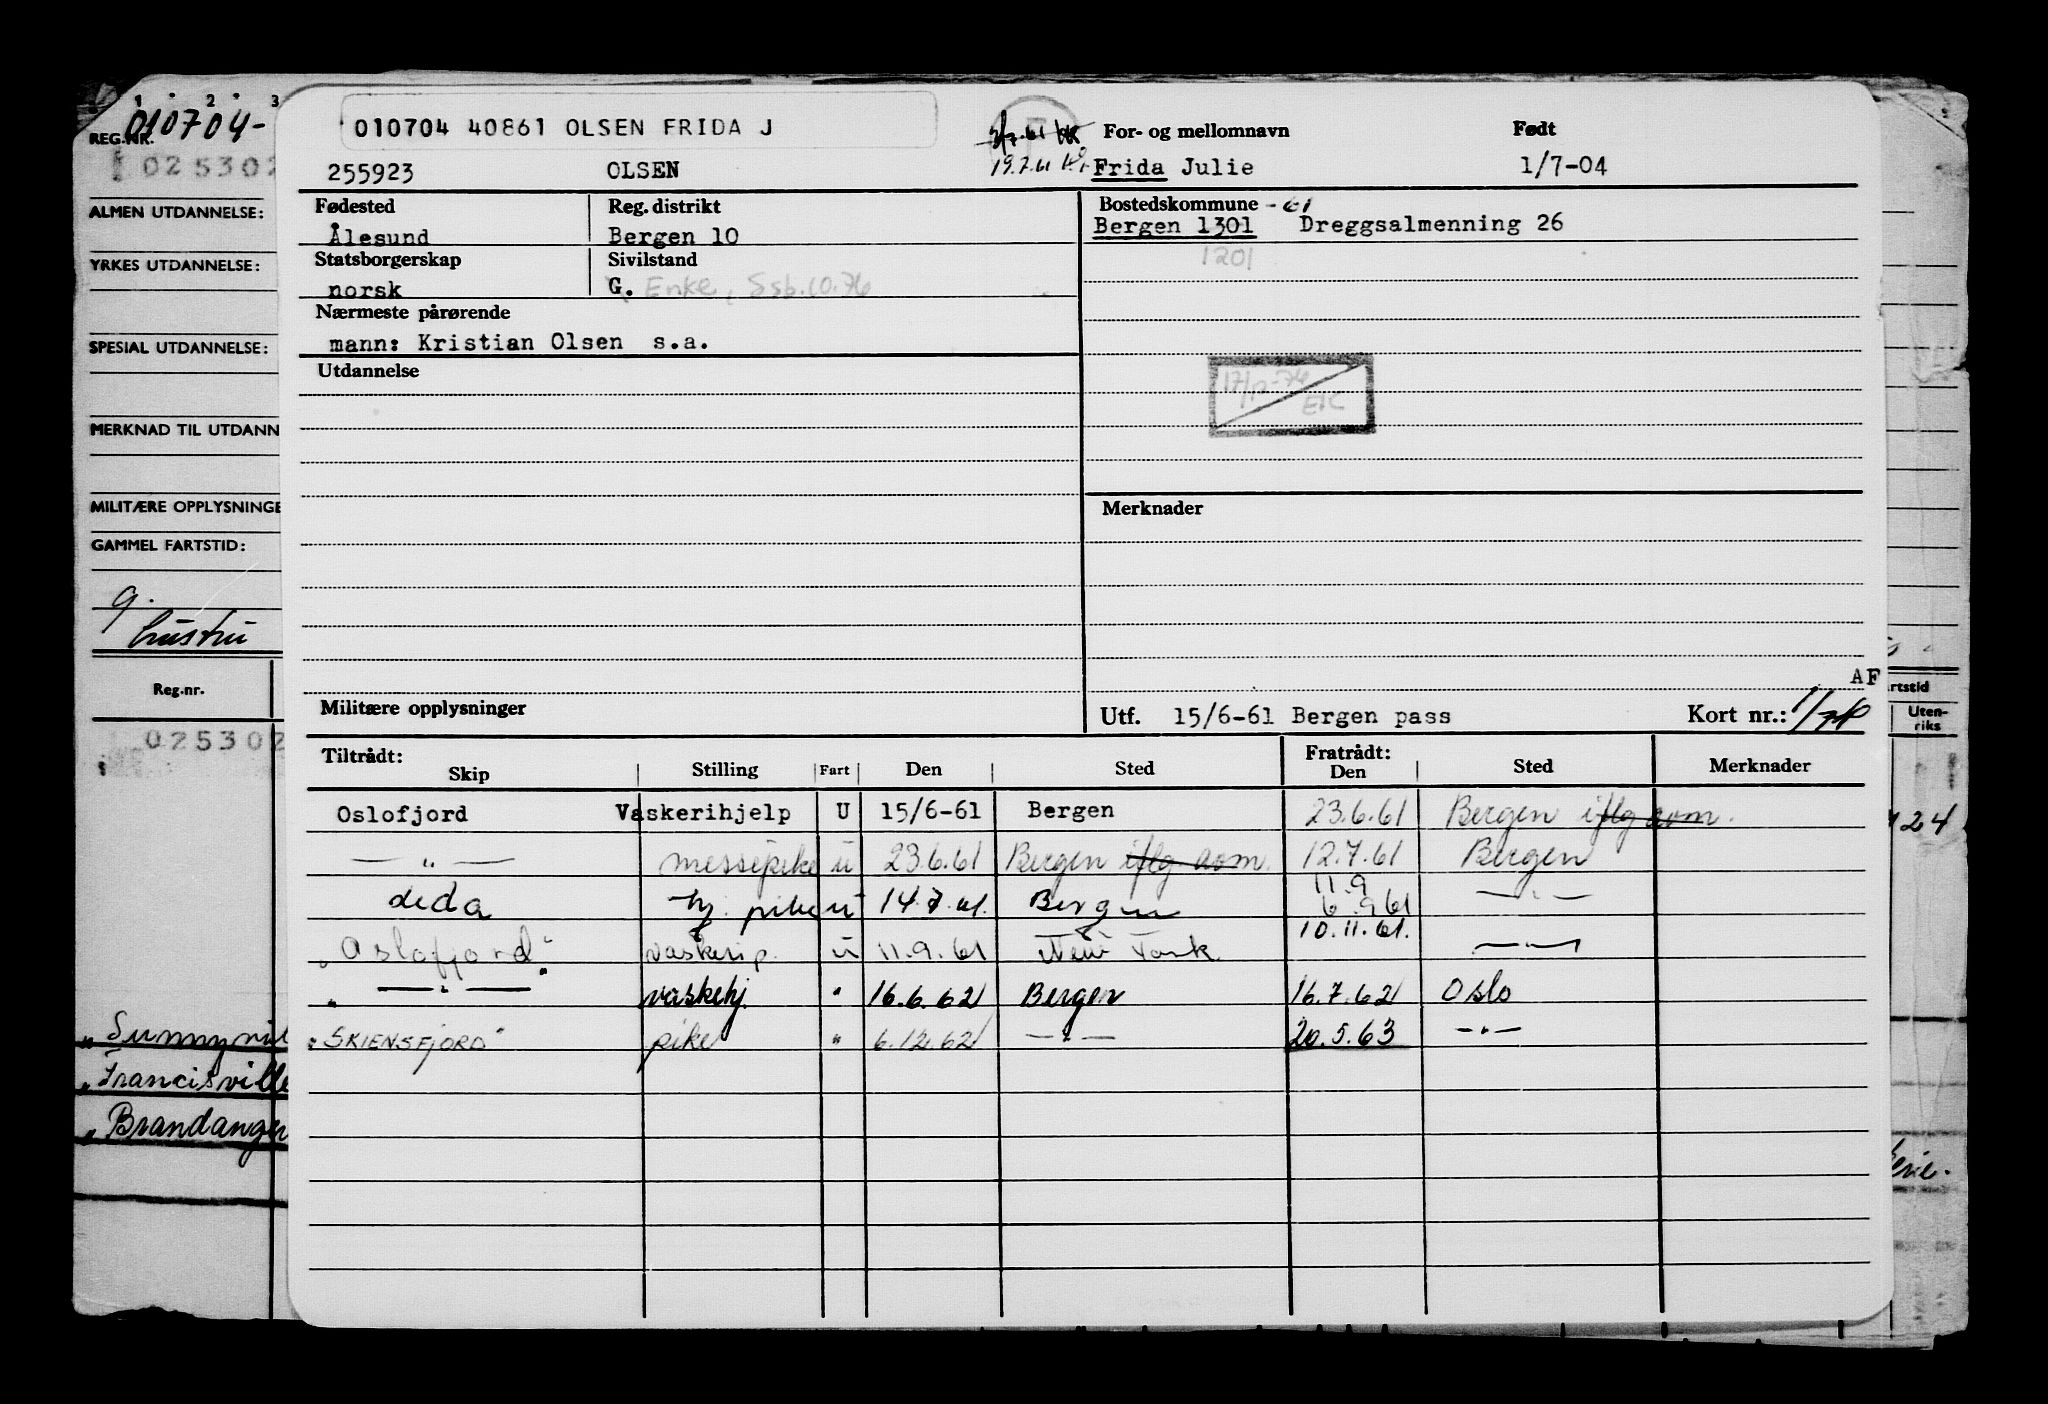 1 · 2 · 3
REG.NR. 010704-
025302
ALMEN UTDANNELSE:
YRKES UTDANNELSE:
SPESIAL UTDANNELSE:
MERKNAD TIL UTDANN
MILITÆRE OPPLYSNINGE
GAMMEL FARTSTID:
g.
hustru
Reg.nr.
025302
"Sunnyvil
"Francisville
"Brandanger
010704 40861 OLSEN FRIDA J
255923 OLSEN
19.7.61
For- og mellomnavn Født
Frida Julie 1/7-04
Fødested Reg. distrikt
Ålesund Bergen 10
Statsborgerskap Sivilstand
norsk G. Enke, Ssb.10.76
Nærmeste pårørende
mann: Kristian Olsen s.a.
Utdannelse
Bostedskommune -61
Bergen 1301 Dreggsalmenning 26
1201
17/12-76
EK
Merknader
AF
Militære opplysninger
Utf. 15/6-61 Bergen pass Kort nr.: 1/
Tiltrådt: Fratrådt:
Skip Stilling Fart Den Sted Den Sted Merknader
Oslofjord Vaskerihjelp U 15/6-61 Bergen 23.6.61 Bergen iflg aom.
— " — messepike u 23.6.61 Bergen iflg aom. 12.7.61 Bergen
Leda hj. pike u 14.7.61. Bergen 11.9 6.9.61 — " —
"Oslofjord" vaskerip. u 11.9.61 New York 10.11.61. — " —
" — " — " vaskehj. " 16.6.62 Bergen 16.7.62 Oslo
"SKIENSFJORD" pike " 6.12.62 — " — 20.5.63 — " —
rtstid
Uten-
riks
24